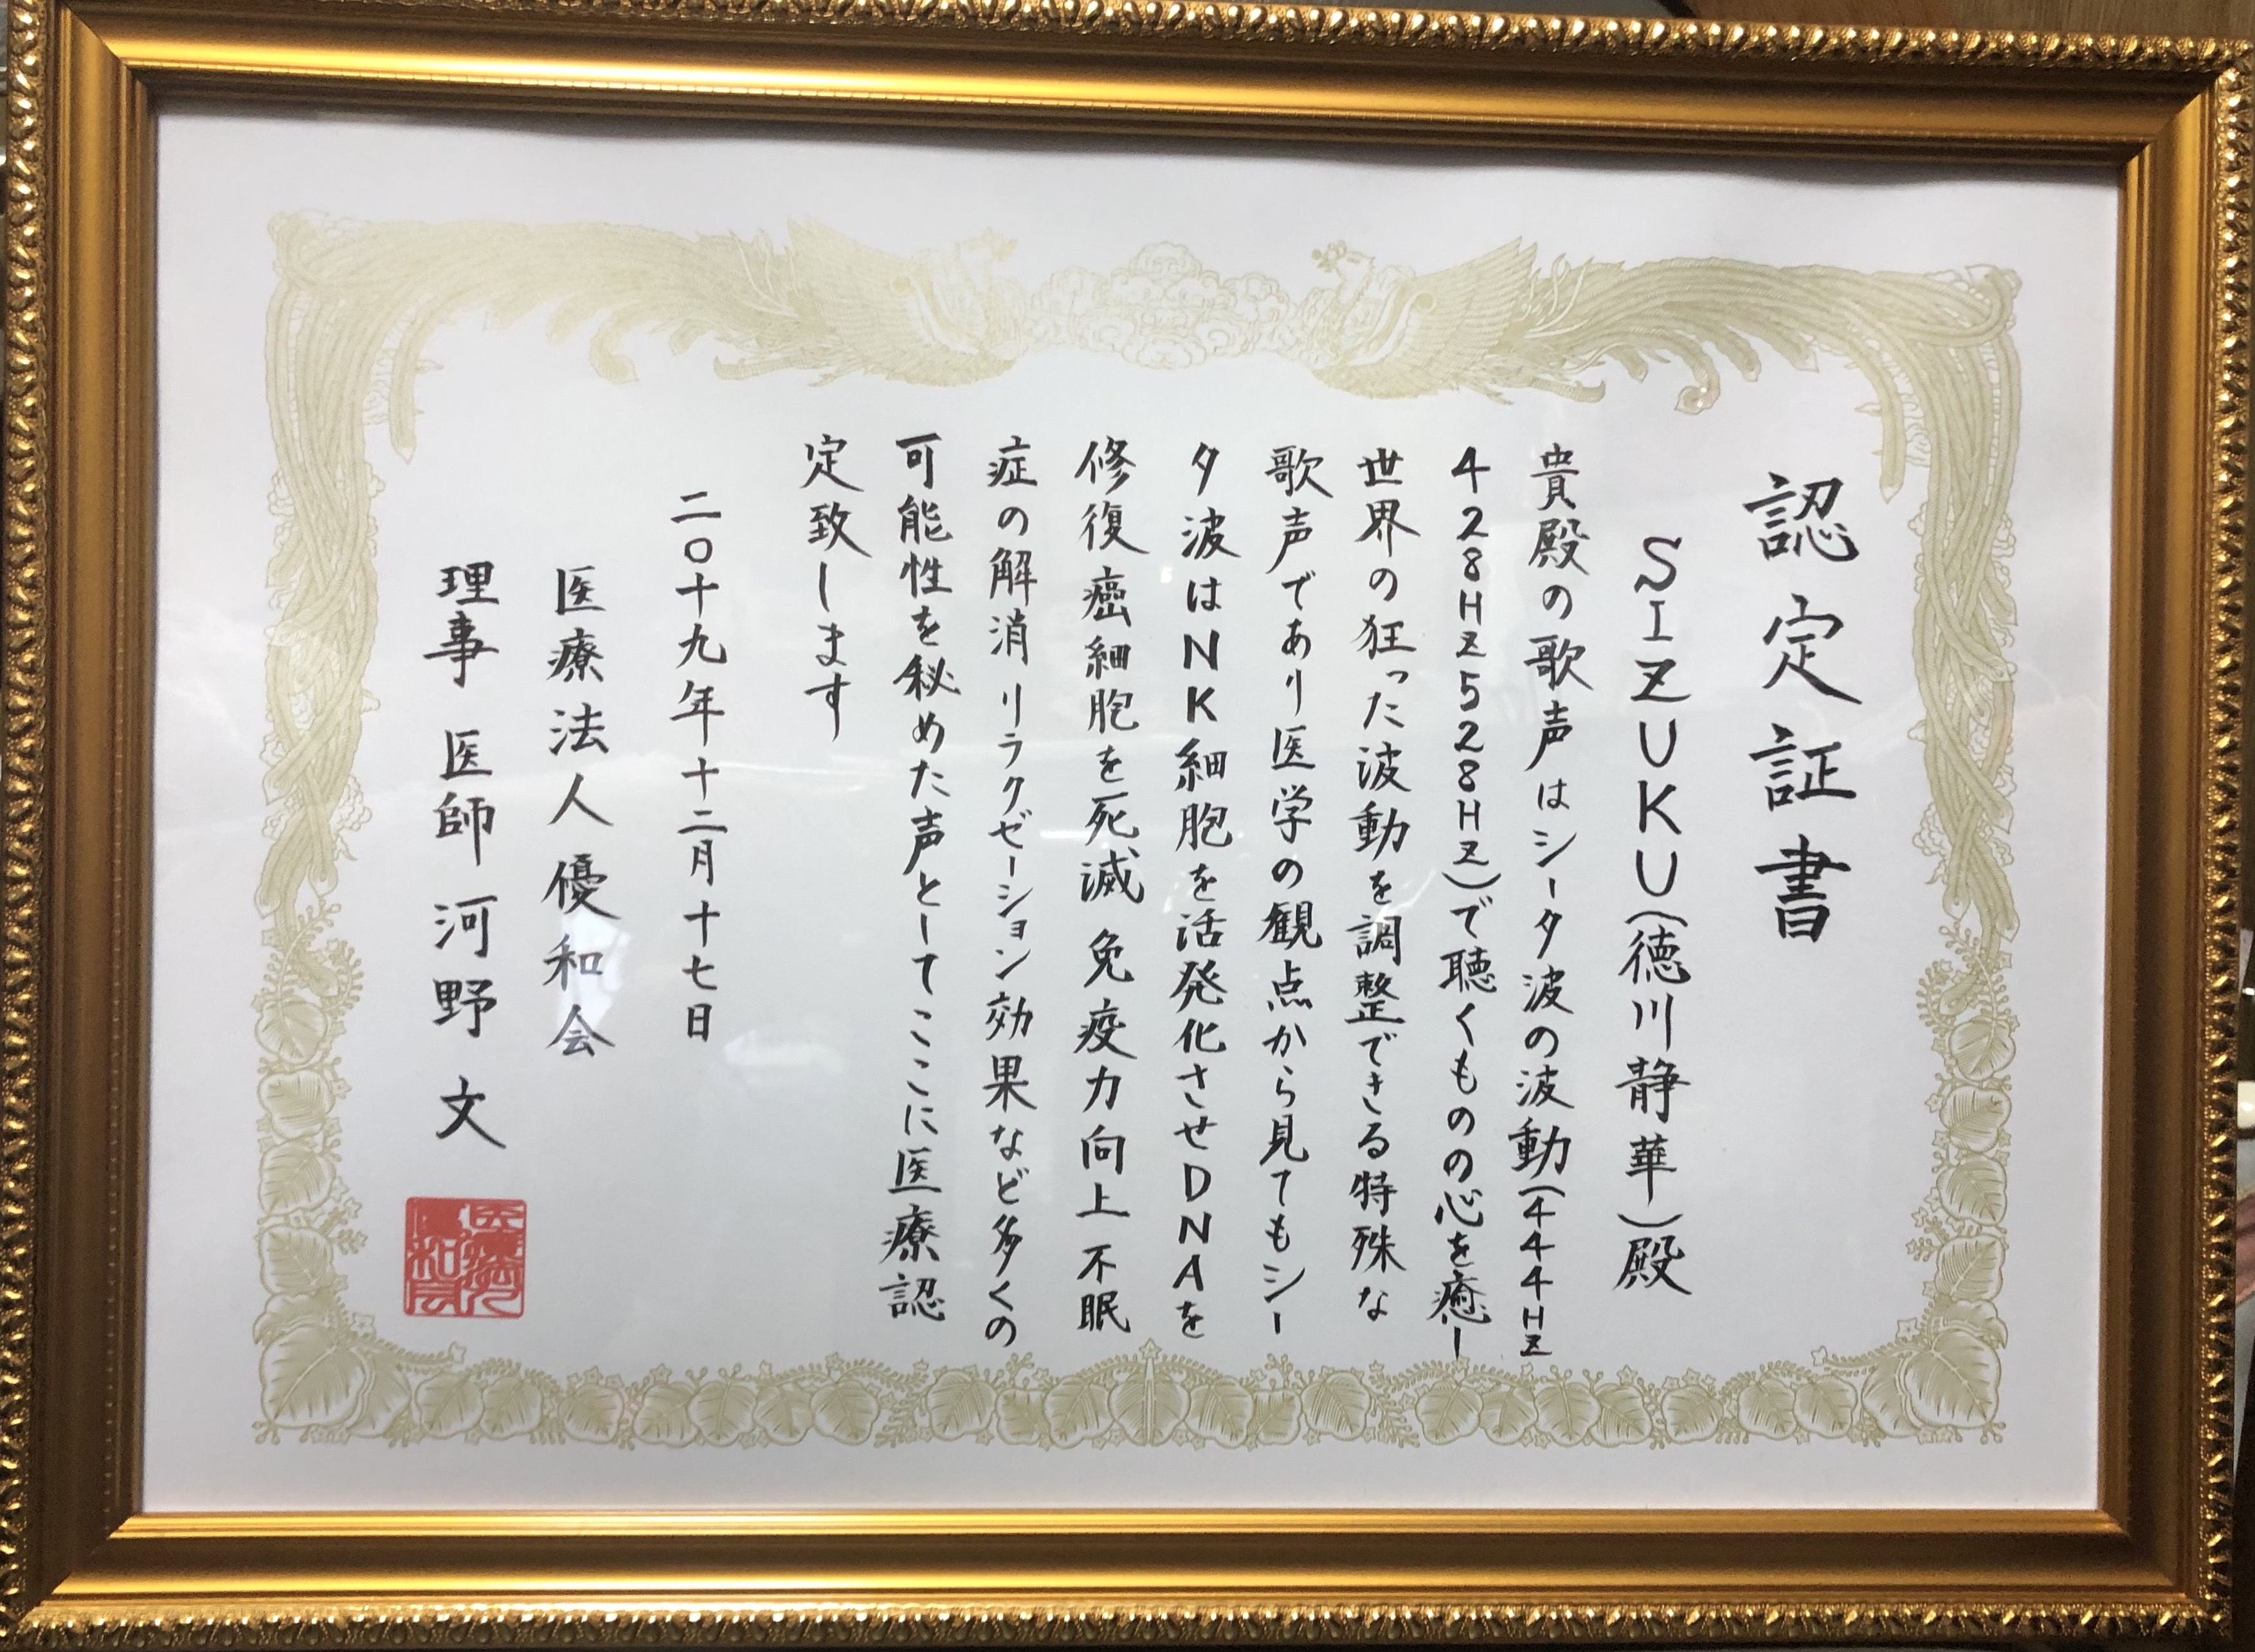 認定証書
SIZUKU(徳川静華)殿
貴殿の歌声はシータ波の波動(444HZ
428HZ528HZ)で聴くものの心を癒し
世界の狂った波動を調整できる特殊な
歌声であり医学の観点から見てもシー
タ波はNK細胞を活発化させDNAを
修復癌細胞を死滅 免疫力向上 不眠
症の解消 リラクゼーション効果など多くの
可能性を秘めた声としてここに医療認
定致します
二〇十九年十二月十七日
医療法人優和会
理事 医師 河野 文
医療法人
優和会